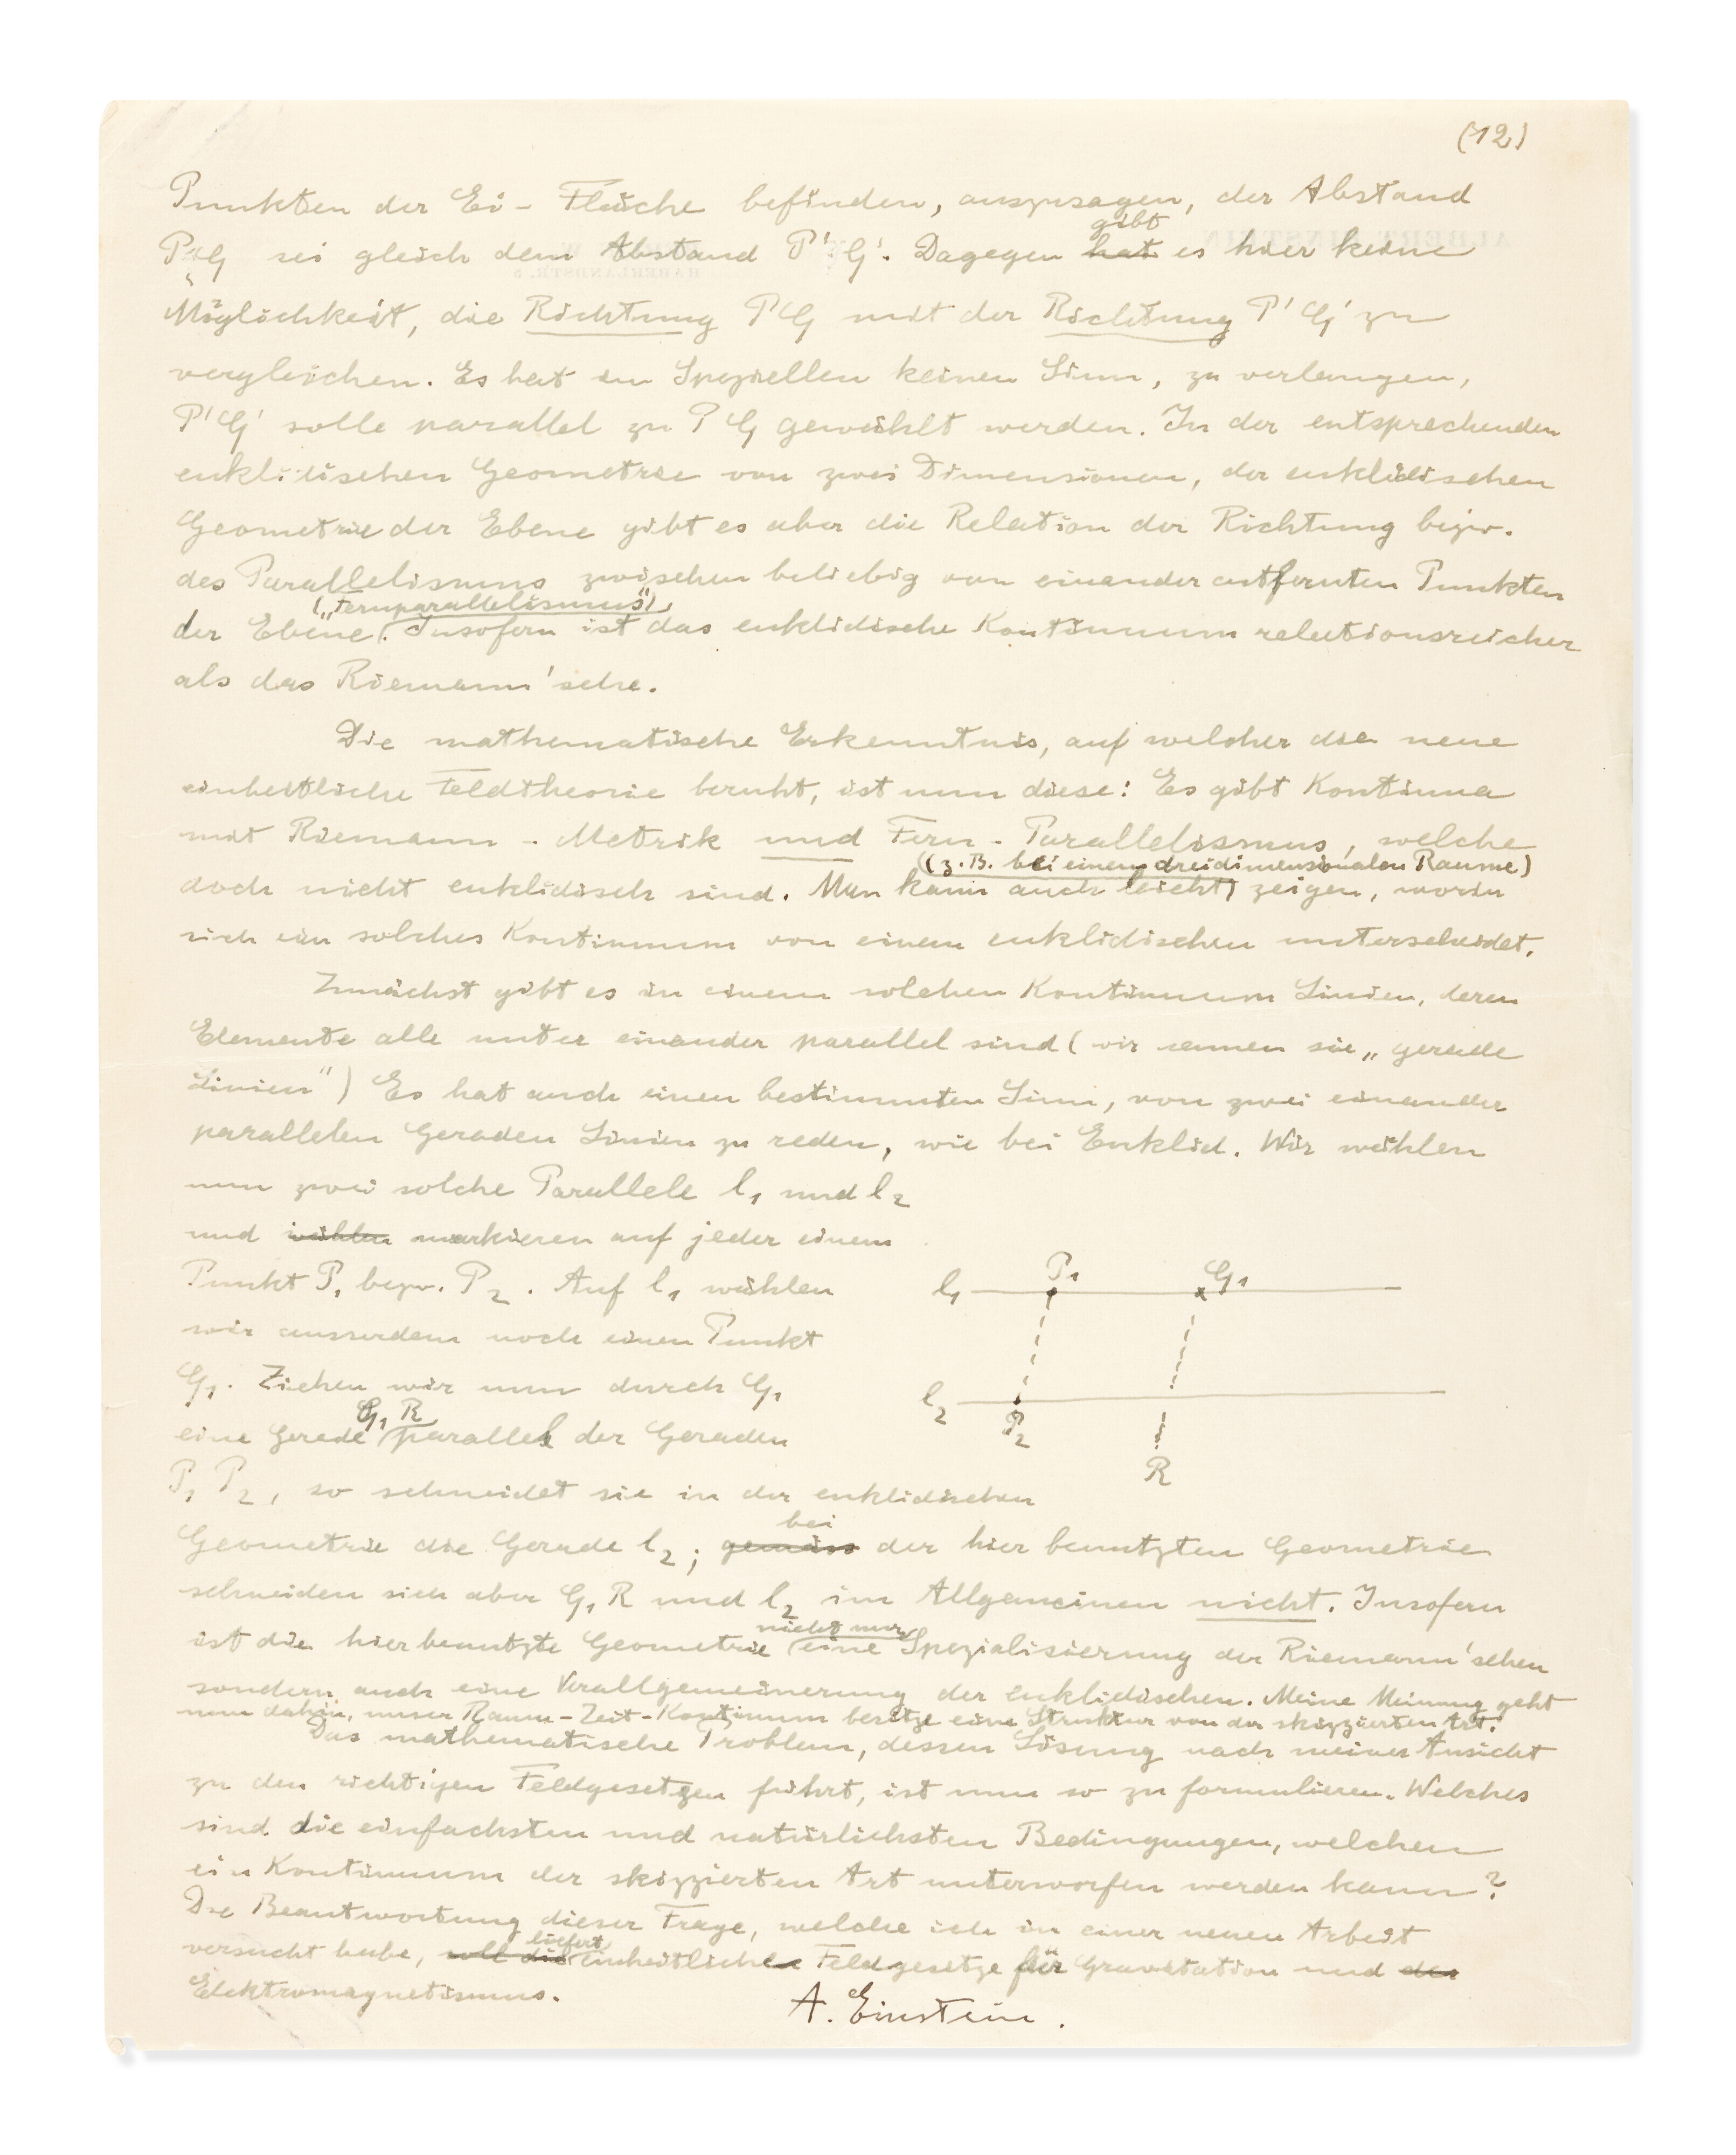 (12)
Punkten der Ei-Fläche befinden, auszusagen, der Abstand
gibt
PG sei gleich dem Abstand P'G'. Dagegen hat es hier keine
Möglichkeit, die Richtung PG mit der Richtung P'G' zu
vergleichen. Es hat im Speziellen keinen Sinn, zu verlangen,
P'G' solle parallel zu PG gewählt werden. In der entsprechenden
euklidischen Geometrie von zwei Dimensionen, der euklidischen
Geometrie der Ebene gibt es aber die Relation der Richtung bezw.
des Parallelismus zwischen beliebig von einander entfernten Punkten
(„Fernparallelismus")
der Ebene. Insofern ist das euklidische Kontinuum relationsreicher
als das Riemann'sche.
Die mathematische Erkenntnis, auf welcher die neue
einheitliche Feldtheorie beruht, ist nun diese: Es gibt Kontinua
mit Riemann-Metrik und Fern-Parallelismus, welche
(z.B. bei einem dreidimensionalen Raume)
doch nicht euklidisch sind. Man kann auch leicht zeigen, worin
sich ein solches Kontinuum von einem euklidischen unterscheidet.
Zunächst gibt es in einem solchen Kontinuum Linien, deren
Elemente alle unter einander parallel sind (wir nennen sie „gerade
Linien") Es hat auch einen bestimmten Sinn, von zwei einander
parallelen Geraden Linien zu reden, wie bei Euklid. Wir wählen
nun zwei solche Parallele l₁ und l₂
und wählen markieren auf jeder einem
Punkt P₁ bezw. P₂. Auf l₁ wählen
wir ausserdem noch einen Punkt
G₁. Ziehen wir nun durch G₁
G₁ R
eine Gerade parallel der Geraden
P₁ P₂, so schneidet sie in der euklidischen
l₁ P₁ G₁
l₂ P₂
R
bei
Geometrie die Gerade l₂; gemäss der hier benutzten Geometrie
schneiden sich aber G₁ R und l₂ im Allgemeinen nicht. Insofern
nicht nur
ist die hier benutzte Geometrie eine Spezialisierung der Riemann'schen
sondern auch eine Verallgemeinerung der euklidischen. Meine Meinung geht
nun dahin, unser Raum-Zeit-Kontinuum besitze eine Struktur von der skizzierten Art.
Das mathematische Problem, dessen Lösung nach meiner Ansicht
zu den richtigen Feldgesetzen führt, ist nun so zu formulieren. Welches
sind die einfachsten und natürlichsten Bedingungen, welchen
ein Kontinuum der skizzierten Art unterworfen werden kann?
Die Beantwortung dieser Frage, welche ich in einer neuen Arbeit
liefert
versucht habe, soll die einheitliche Feldgesetze für Gravitation und den
Elektromagnetismus.
A. Einstein.